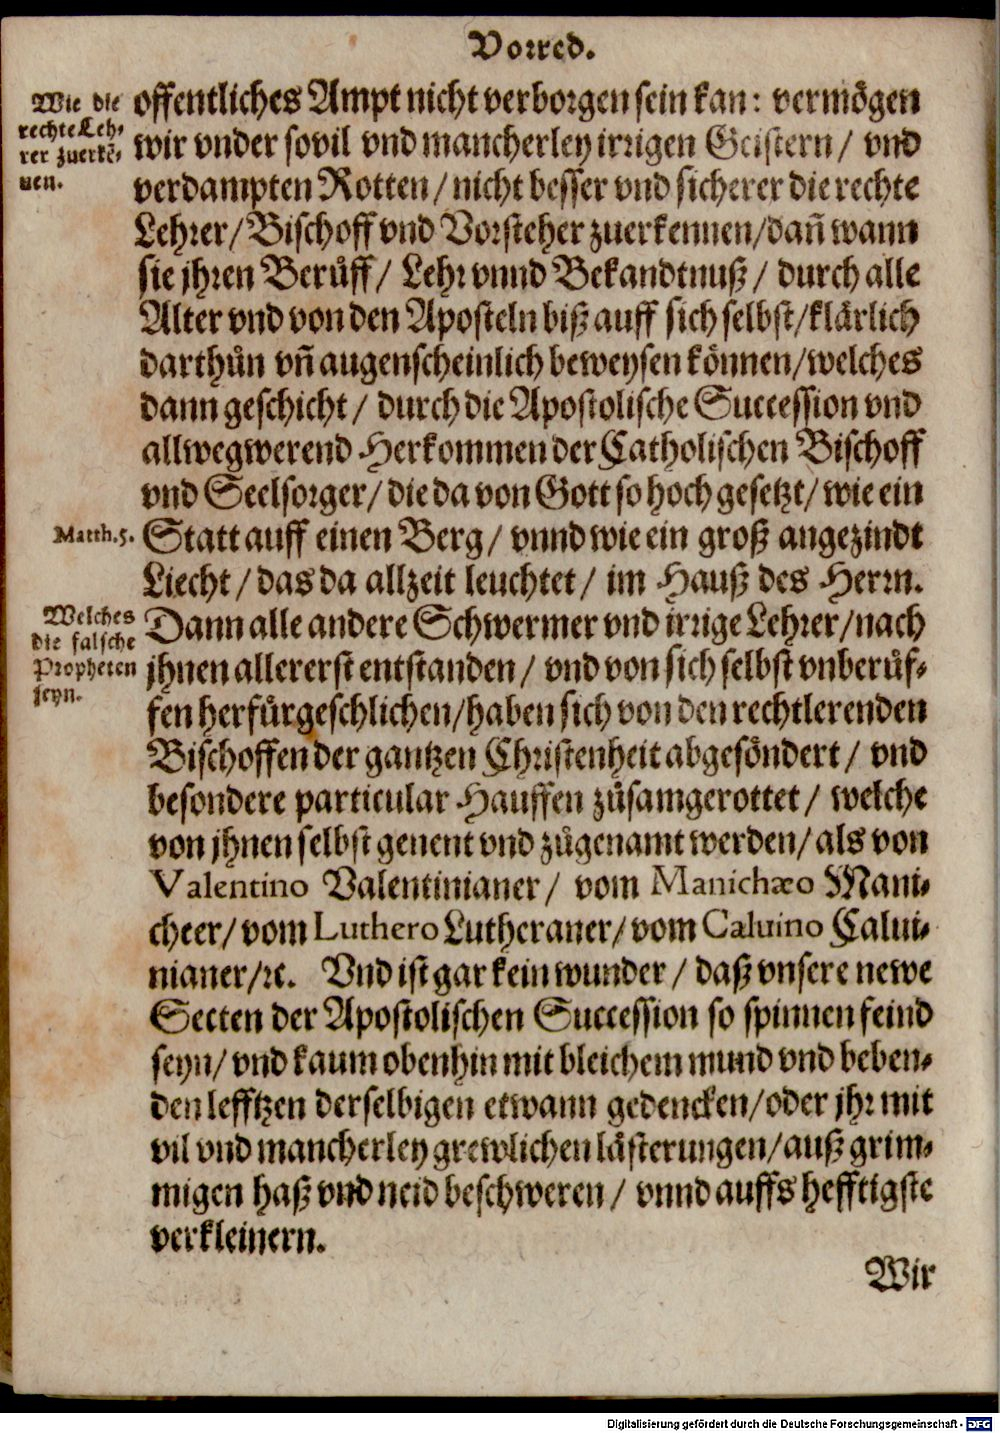 Vorred.
Wie die
rechte Leh-
rer zuerkē-
nen.
offentliches Ampt nicht verborgen sein kan: vermögen
wir vnder sovil vnd mancherley irrigen Geistern / vnd
verdampten Rotten / nicht besser vnd sicherer die rechte
Lehrer / Bischoff vnd Vorsteher zuerkennen / dañ wann
sie jhren Berůff / Lehr vnnd Bekandtnuß / durch alle
Alter vnd von den Aposteln biß auff sich selbst / klärlich
darthůn vñ augenscheinlich beweysen können / welches
dann geschicht / durch die Apostolische Succession vnd
allwegwerend Herkommen der Catholischen Bischoff
vnd Seelsorger / die da von Gott so hoch gesetzt / wie ein
Matth.5.
Statt auff einen Berg / vnnd wie ein groß angezindt
Liecht / das da allzeit leuchtet / im Hauß des Herrn.
Welches
die falsche
Propheten
seyn.
Dann alle andere Schwermer vnd irrige Lehrer / nach
jhnen allererst entstanden / vnd von sich selbst vnberůf-
fen herfürgeschlichen / haben sich von den rechtlerenden
Bischoffen der gantzen Christenheit abgesöndert / vnd
besondere particular Hauffen zůsamgerottet / welche
von jhnen selbst genent vnd zůgenamt werden / als von
Valentino Valentinianer / vom Manichæo Mani-
cheer / vom Luthero Lutheraner / vom Caluino Calui-
nianer / ꝛc. Vnd ist gar kein wunder / daß vnsere newe
Secten der Apostolischen Succession so spinnen feind
seyn / vnd kaum obenhin mit bleichem mund vnd beben-
den lefftzen derselbigen etwann gedencken / oder jhr mit
vil vnd mancherley grewlichen lästerungen / auß grim-
migen haß vnd neid beschweren / vnnd auffs hefftigste
verkleinern.
Wir
Digitalisierung gefördert durch die Deutsche Forschungsgemeinschaft - DFG